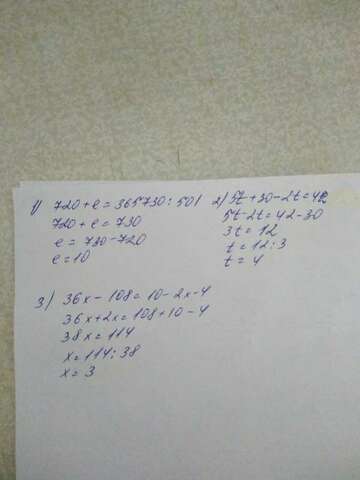 1) 720 + e = 365730 : 501
720 + e = 730
e = 730 - 720
e = 10
2) 5t + 30 - 2t = 42
5t - 2t = 42 - 30
3t = 12
t = 12 : 3
t = 4
3) 36x - 108 = 10 - 2x - 4
36x + 2x = 108 + 10 - 4
38x = 114
x = 114 : 38
x = 3